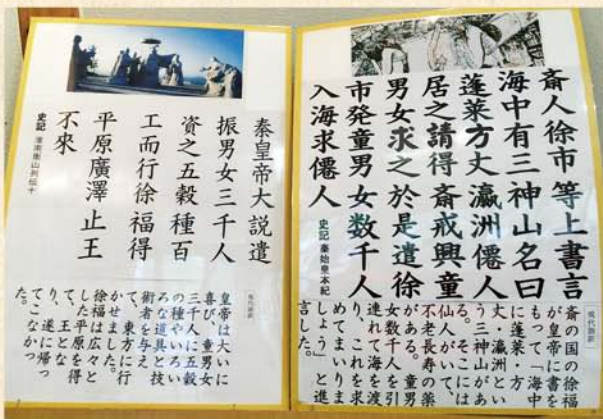 斎人徐市等上書言
海中有三神山名曰
蓬莱方丈瀛洲僊人
居之請得斎戒興童
男女求之於是遣徐
市発童男女数千人
入海求僊人
史記 秦始皇本紀
現代語訳
斎の国の徐福
が皇帝に書を
もって「海中
に蓬莱・方
丈・瀛洲とい
う三神山があ
る。そこには
仙人がいて、
不老長寿の薬
がある。童男
女数千人を引
連れて海を渡
り、これを求
めてまいりま
しょう」と進
言した。
秦皇帝大説遣
振男女三千人
資之五穀種百
工而行徐福得
平原廣澤止王
不來
史記 淮南衡山列伝十
現代語訳
皇帝は大いに
喜び、童男女
三千人に五穀
の種やいろい
ろな道具と技
術者を与え
て、東方に行
かせました。
徐福は広々と
した平原を得
て、王とな
り、遂に帰っ
てこなかっ
た。